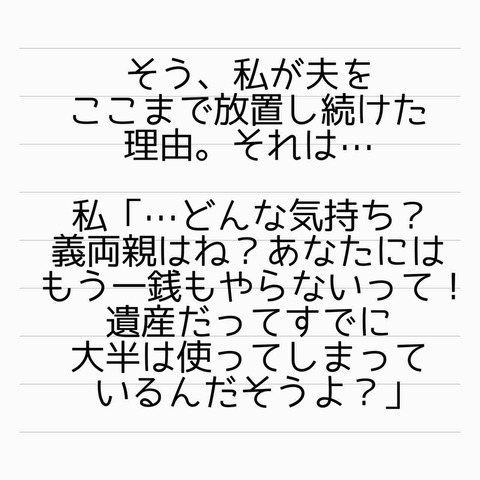 そう、私が夫を
ここまで放置し続けた
理由。それは…
私「…どんな気持ち？
義両親はね？あなたには
もう一銭もやらないって！
遺産だってすでに
大半は使ってしまって
いるんだそうよ？」